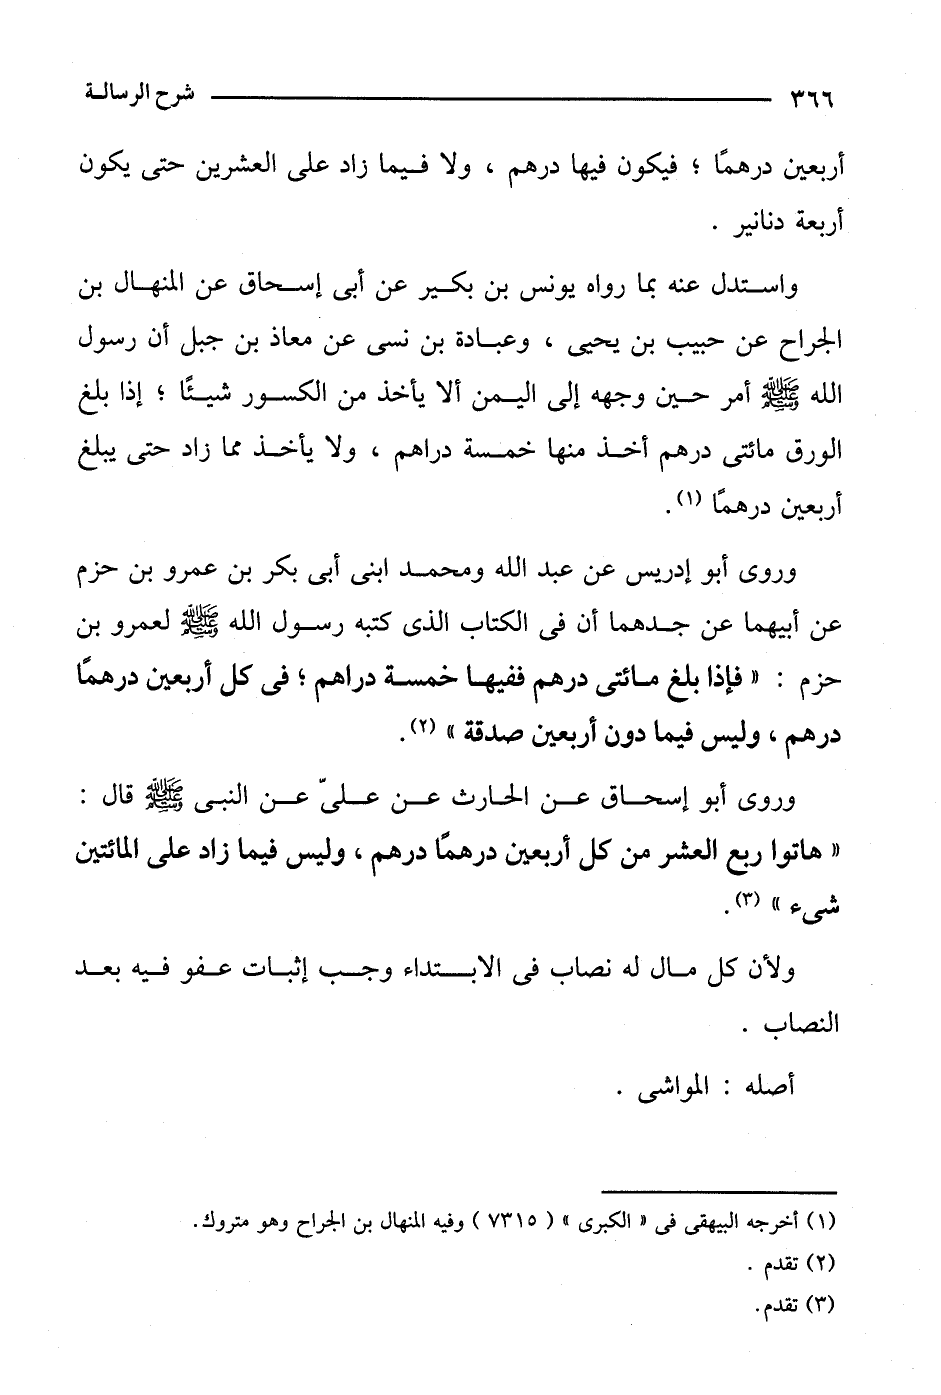 ٣٦٦ شرح الرسالة
أربعين درهمًا ؛ فيكون فيها درهم ، ولا فيما زاد على العشرين حتى يكون
أربعة دنانير .
واستدل عنه بما رواه يونس بن بكير عن أبى إسحاق عن المنهال بن
الجراح عن حبيب بن يحيى ، وعبادة بن نسى عن معاذ بن جبل أن رسول
الله ﷺ أمر حين وجهه إلى اليمن ألا يأخذ من الكسور شيئًا ؛ إذا بلغ
الورق مائتى درهم أخذ منها خمسة دراهم ، ولا يأخذ مما زاد حتى يبلغ
أربعين درهمًا (١).
وروى أبو إدريس عن عبد الله ومحمد ابنى أبى بكر بن عمرو بن حزم
عن أبيهما عن جدهما أن فى الكتاب الذى كتبه رسول الله ﷺ لعمرو بن
حزم : « فإذا بلغ مائتى درهم ففيها خمسة دراهم ؛ فى كل أربعين درهمًا
درهم ، وليس فيما دون أربعين صدقة » (٢).
وروى أبو إسحاق عن الحارث عن علىّ عن النبى ﷺ قال :
« هاتوا ربع العشر من كل أربعين درهمًا درهم ، وليس فيما زاد على المائتين
شىء » (٣).
ولأن كل مال له نصاب فى الابتداء وجب إثبات عفو فيه بعد
النصاب .
أصله : المواشى .
(١) أخرجه البيهقى فى « الكبرى » ( ٧٣١٥ ) وفيه المنهال بن الجراح وهو متروك.
(٢) تقدم .
(٣) تقدم.